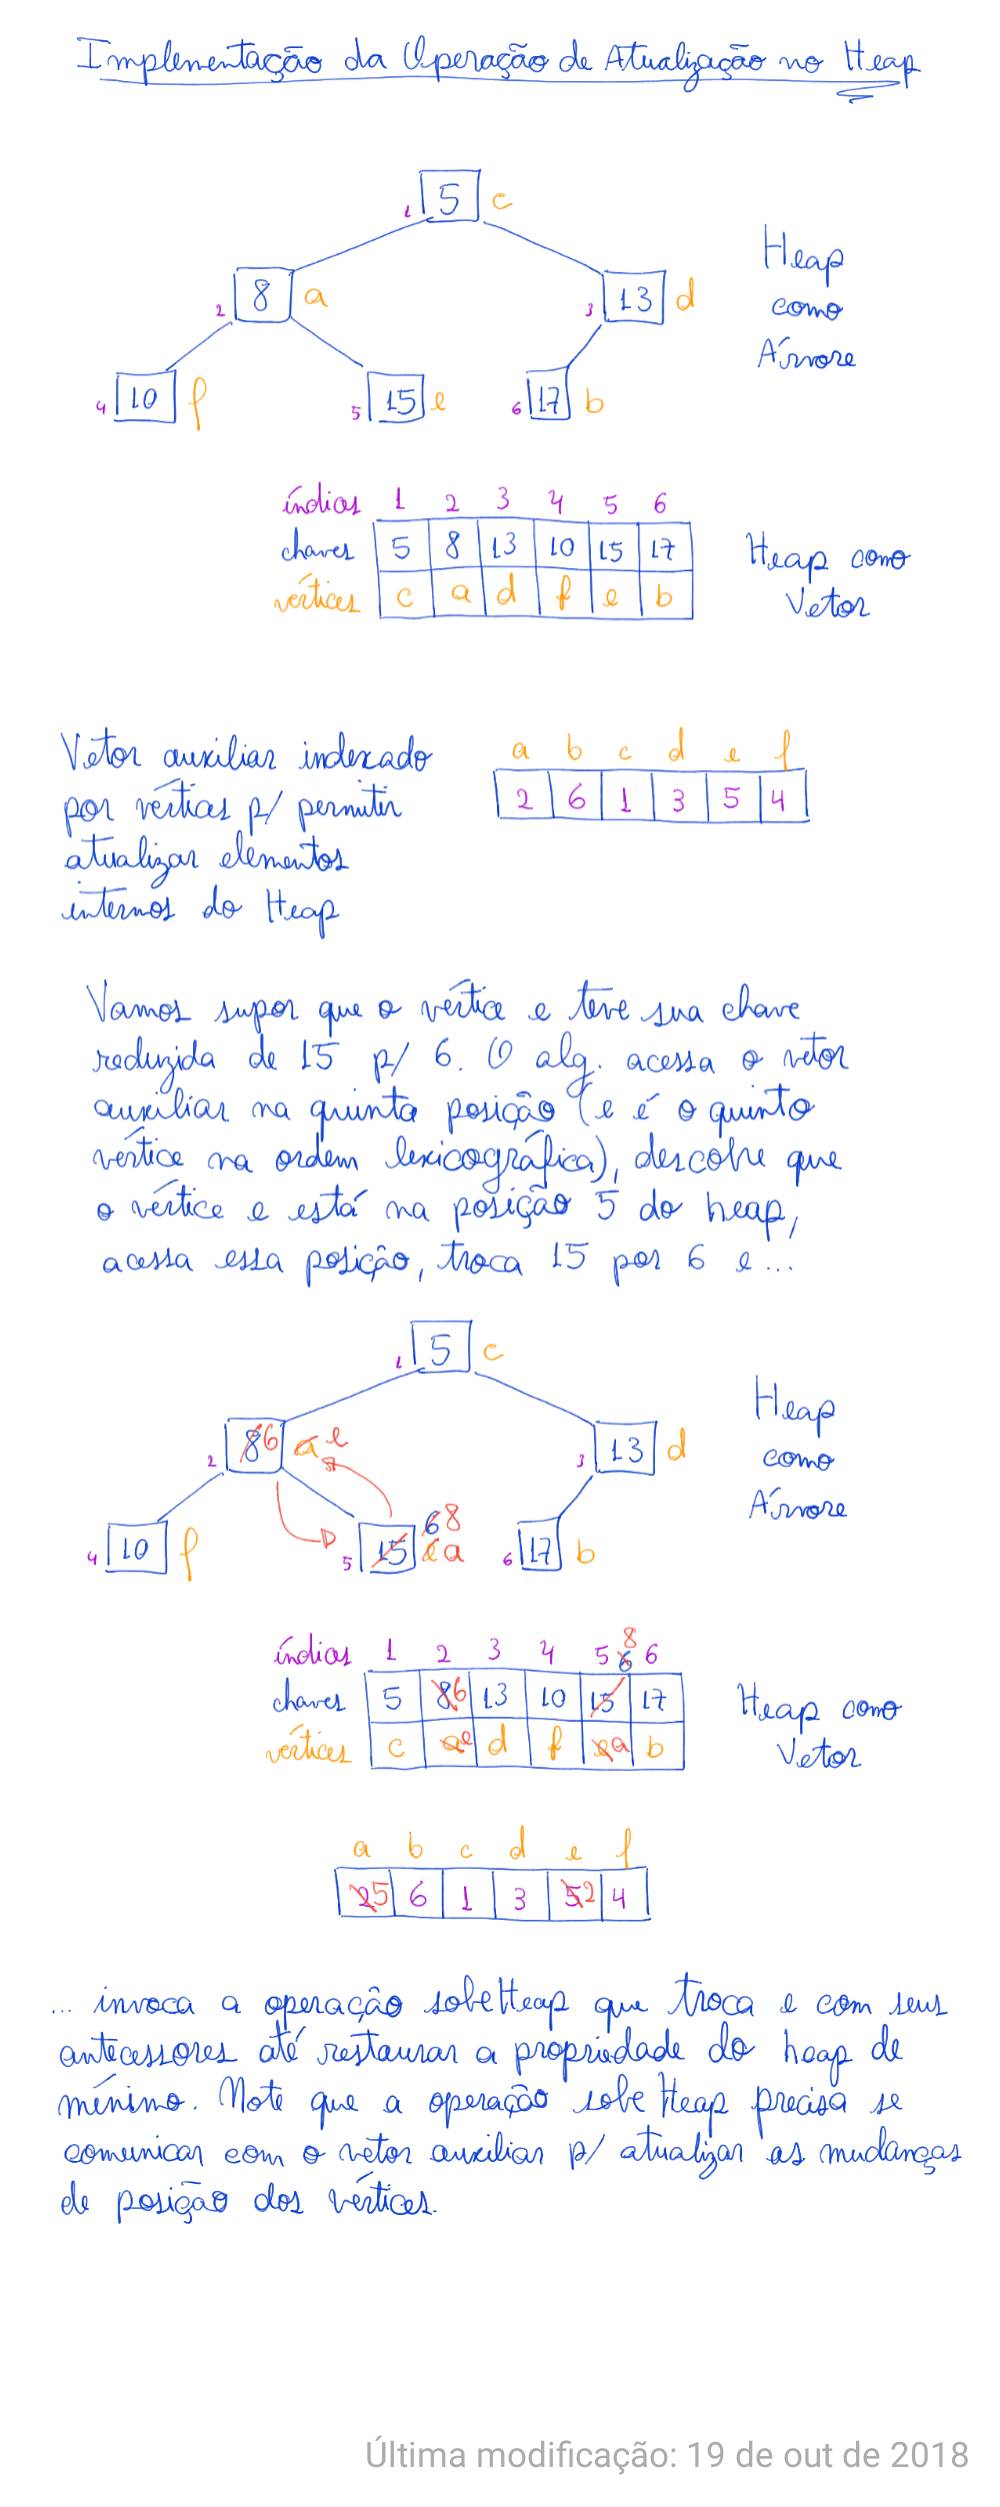 Implementação da Operação de Atualização no Heap
1 5 c
2 8 a
3 13 d
Heap
como
Árvore
4 10 f
5 15 e
6 17 b
índices 1 2 3 4 5 6
chaves 5 8 13 10 15 17
vértices c a d f e b
Heap como
Vetor
Vetor auxiliar indexado
por vértices p/ permitir
atualizar elementos
internos do Heap
a b c d e f
2 6 1 3 5 4
Vamos supor que o vértice e teve sua chave
reduzida de 15 p/ 6. O alg. acessa o vetor
auxiliar na quinta posição (e é o quinto
vértice na ordem lexicográfica), descobre que
o vértice e está na posição 5 do heap,
acessa essa posição, troca 15 por 6 e...
1 5 c
2 8 6 a e
3 13 d
Heap
como
Árvore
4 10 f
6 8
5 15 e a
6 17 b
8
índices 1 2 3 4 5 6 6
chaves 5 8 6 13 10 15 17
vértices c a e d f e a b
Heap como
Vetor
a b c d e f
2 5 6 1 3 5 2 4
... invoca a operação sobeHeap que troca e com seus
antecessores até restaurar a propriedade do heap de
mínimo. Note que a operação sobeHeap precisa se
comunicar com o vetor auxiliar p/ atualizar as mudanças
de posição dos vértices.
Última modificação: 19 de out de 2018